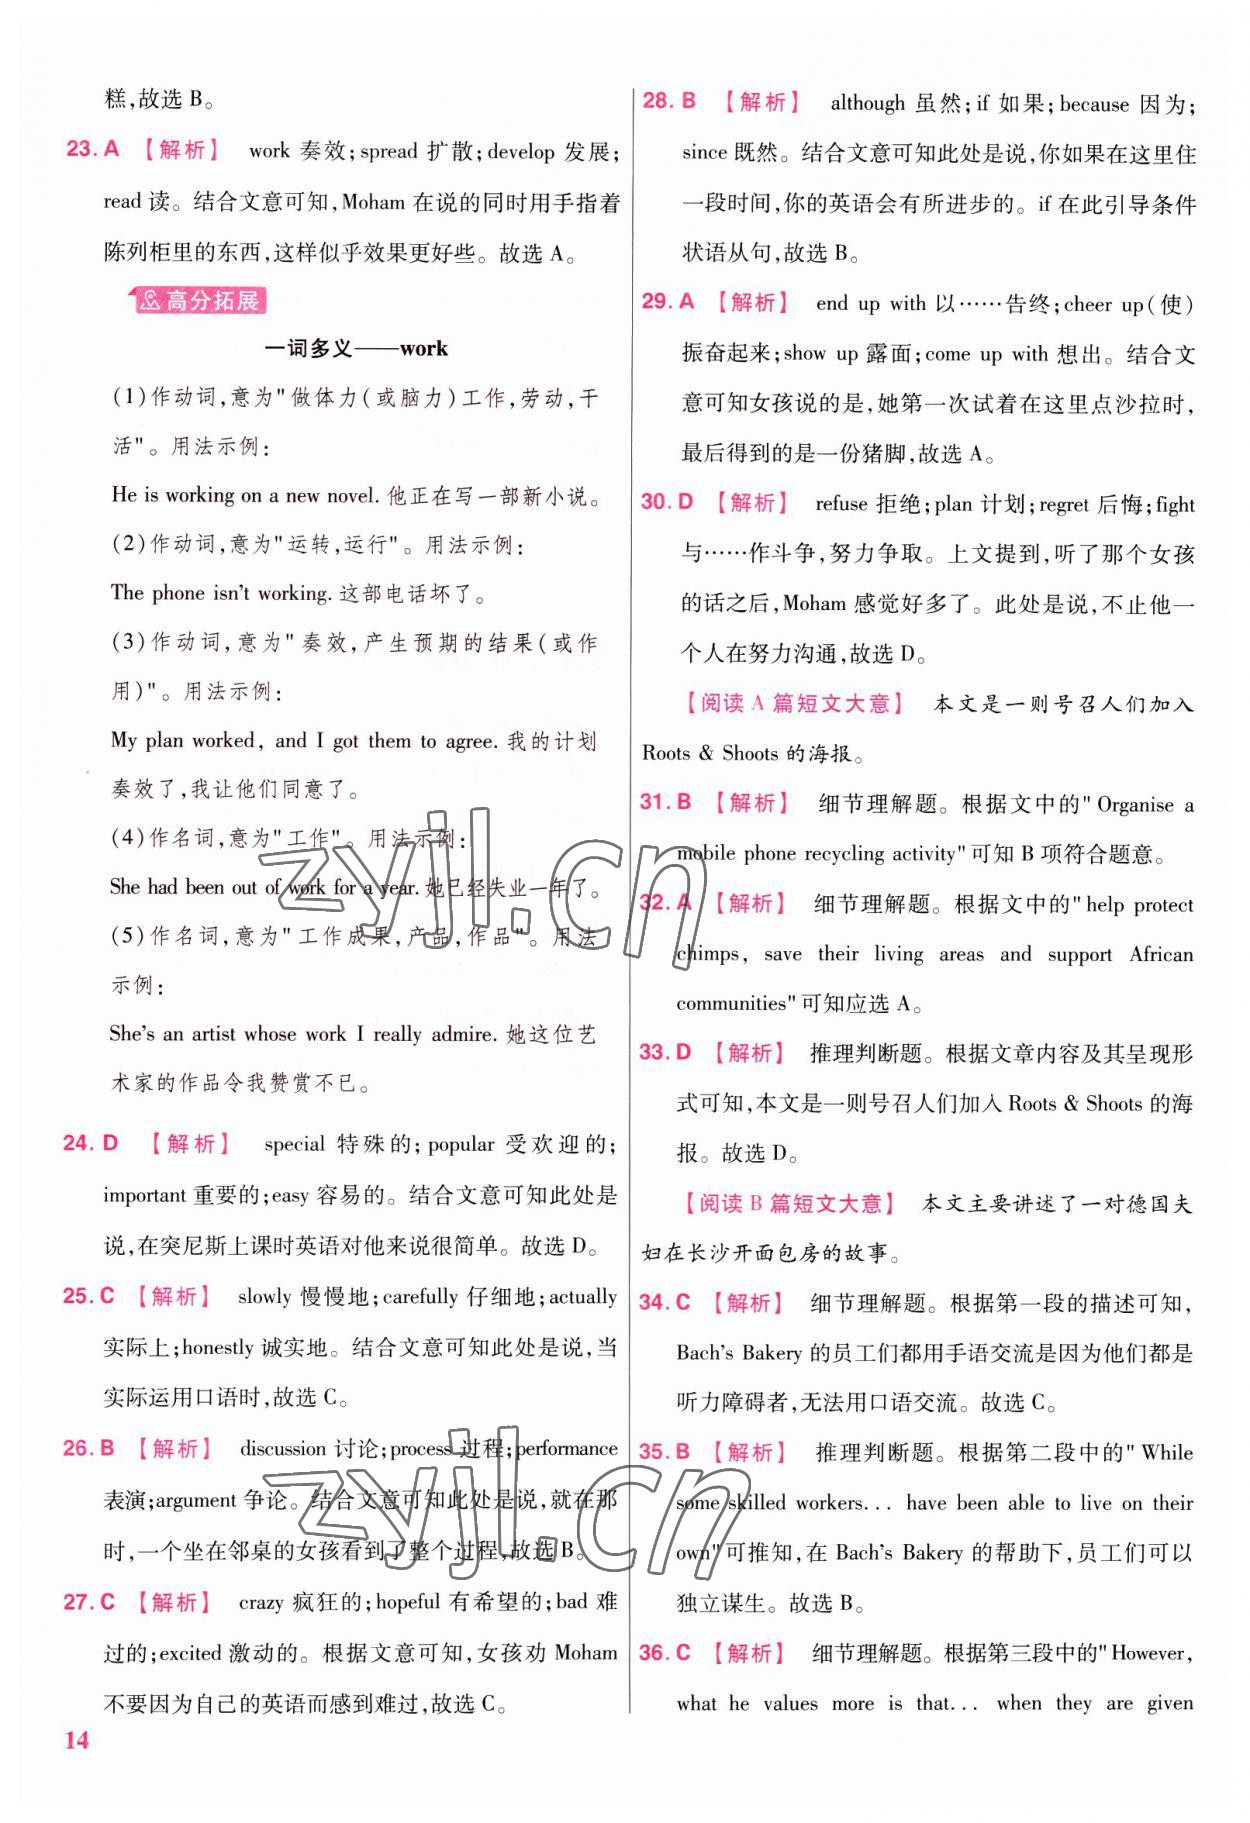 糕,故选 B。
23. A 【解析】 work 奏效;spread 扩散;develop 发展;
read 读。结合文意可知,Moham 在说的同时用手指着
陈列柜里的东西,这样似乎效果更好些。故选 A。
高分拓展
一词多义——work
(1)作动词,意为"做体力(或脑力)工作,劳动,干
活"。用法示例:
He is working on a new novel. 他正在写一部新小说。
(2)作动词,意为"运转,运行"。用法示例:
The phone isn't working. 这部电话坏了。
(3)作动词,意为"奏效,产生预期的结果(或作
用)"。用法示例:
My plan worked, and I got them to agree. 我的计划
奏效了,我让他们同意了。
(4)作名词,意为"工作"。用法示例:
She had been out of work for a year. 她已经失业一年了。
(5)作名词,意为"工作成果,产品,作品"。用法
示例:
She's an artist whose work I really admire. 她这位艺
术家的作品令我赞赏不已。
24. D 【解析】 special 特殊的;popular 受欢迎的;
important 重要的;easy 容易的。结合文意可知此处是
说,在突尼斯上课时英语对他来说很简单。故选 D。
25. C 【解析】 slowly 慢慢地;carefully 仔细地;actually
实际上;honestly 诚实地。结合文意可知此处是说,当
实际运用口语时,故选 C。
26. B 【解析】 discussion 讨论;process 过程;performance
表演;argument 争论。结合文意可知此处是说,就在那
时,一个坐在邻桌的女孩看到了整个过程,故选 B。
27. C 【解析】 crazy 疯狂的;hopeful 有希望的;bad 难
过的;excited 激动的。根据文意可知,女孩劝 Moham
不要因为自己的英语而感到难过,故选 C。
14
28. B 【解析】 although 虽然;if 如果;because 因为;
since 既然。结合文意可知此处是说,你如果在这里住
一段时间,你的英语会有所进步的。if 在此引导条件
状语从句,故选 B。
29. A 【解析】 end up with 以……告终;cheer up(使)
振奋起来;show up 露面;come up with 想出。结合文
意可知女孩说的是,她第一次试着在这里点沙拉时,
最后得到的是一份猪脚,故选 A。
30. D 【解析】 refuse 拒绝;plan 计划;regret 后悔;fight
与……作斗争,努力争取。上文提到,听了那个女孩
的话之后,Moham 感觉好多了。此处是说,不止他一
个人在努力沟通,故选 D。
【阅读 A 篇短文大意】 本文是一则号召人们加入
Roots & Shoots 的海报。
31. B 【解析】 细节理解题。根据文中的" Organise a
mobile phone recycling activity"可知 B 项符合题意。
32. A 【解析】 细节理解题。根据文中的"help protect
chimps, save their living areas and support African
communities"可知应选 A。
33. D 【解析】 推理判断题。根据文章内容及其呈现形
式可知,本文是一则号召人们加入 Roots & Shoots 的海
报。故选 D。
【阅读 B 篇短文大意】 本文主要讲述了一对德国夫
妇在长沙开面包房的故事。
34. C 【解析】 细节理解题。根据第一段的描述可知,
Bach's Bakery 的员工们都用手语交流是因为他们都是
听力障碍者,无法用口语交流。故选 C。
35. B 【解析】 推理判断题。根据第二段中的" While
some skilled workers... have been able to live on their
own"可推知,在 Bach's Bakery 的帮助下,员工们可以
独立谋生。故选 B。
36. C 【解析】 细节理解题。根据第三段中的"However,
what he values more is that... when they are given
zyjl.cn
zyjl.cn